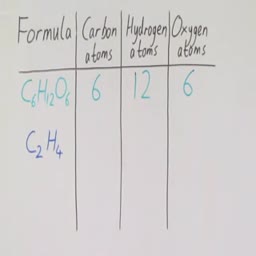 Formula Carbon atoms Hydrogen atoms Oxygen atoms
C₆H₁₂O₆ 6 12 6
C₂H₄